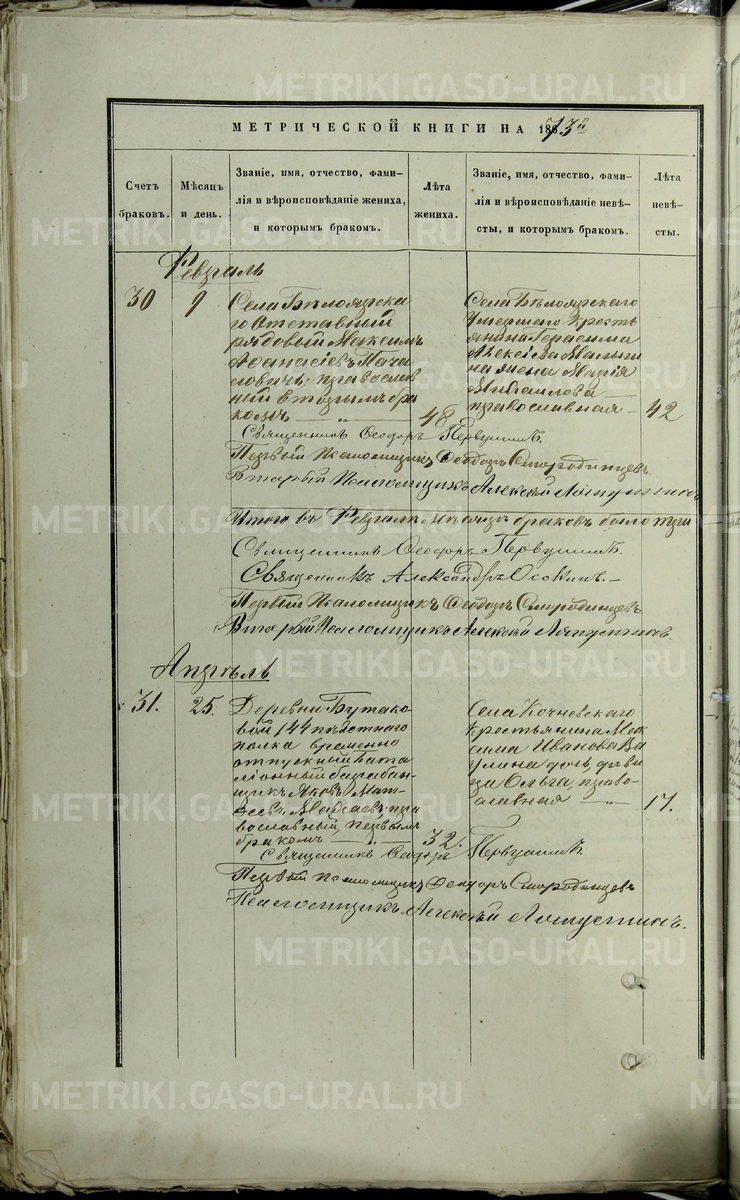 МЕТРИЧЕСКОЙ КНИГИ НА 1873й
Счетъ браковъ.
Мѣсяцъ и день.
Званіе, имя, отчество, фами-
лія и вѣроисповѣданіе жениха,
и которымъ бракомъ.
Лѣта жениха.
Званіе, имя, отчество, фами-
лія и вѣроисповѣданіе невѣ-
сты, и которымъ бракомъ.
Лѣта невѣ-
сты.
Февраль
30
9
Села Бѣлоярска
го Отставный
рядовый Максимъ
Аѳанасіевъ
православ
ный вторымъ бра
комъ
48
Села Бѣлоярскаго
умершаго Кресть
янина Герасима
Алексіева Малыги
на жена Марія
Михаилова
православная
42
Священникъ Ѳеодоръ Первушинъ.
Первый Псаломщикъ Ѳеодоръ Смородинцевъ
Вторый Псаломщикъ Алексѣй Ляпустинъ
Итого въ Февралѣ мѣсяцѣ браковъ было три
Священникъ Ѳеодоръ Первушинъ.
Священникъ Александръ Осокинъ.
Первый Псаломщикъ Ѳеодоръ Смородинцевъ
Вторый Псаломщикъ Алексѣй Ляпустинъ.
Апрѣль
31.
25.
Деревни Бутако
вой 144 пѣхотнаго
полка временно
отпускный бата
ліонный барабан-
щикъ Яковъ Мат-
ѳеевъ пра
вославный, первымъ
бракомъ
32.
Села Кочневскаго
крестьянина Мак
сима Иванова Ва
улина дочь, дѣви
ца Ольга, право-
славная
17.
Священникъ Ѳеодоръ Первушинъ.
Первый Псаломщикъ Ѳеодоръ Смородинцевъ
Псаломщикъ Алексѣй Ляпустинъ.
METRIKI.GASO-URAL.RU